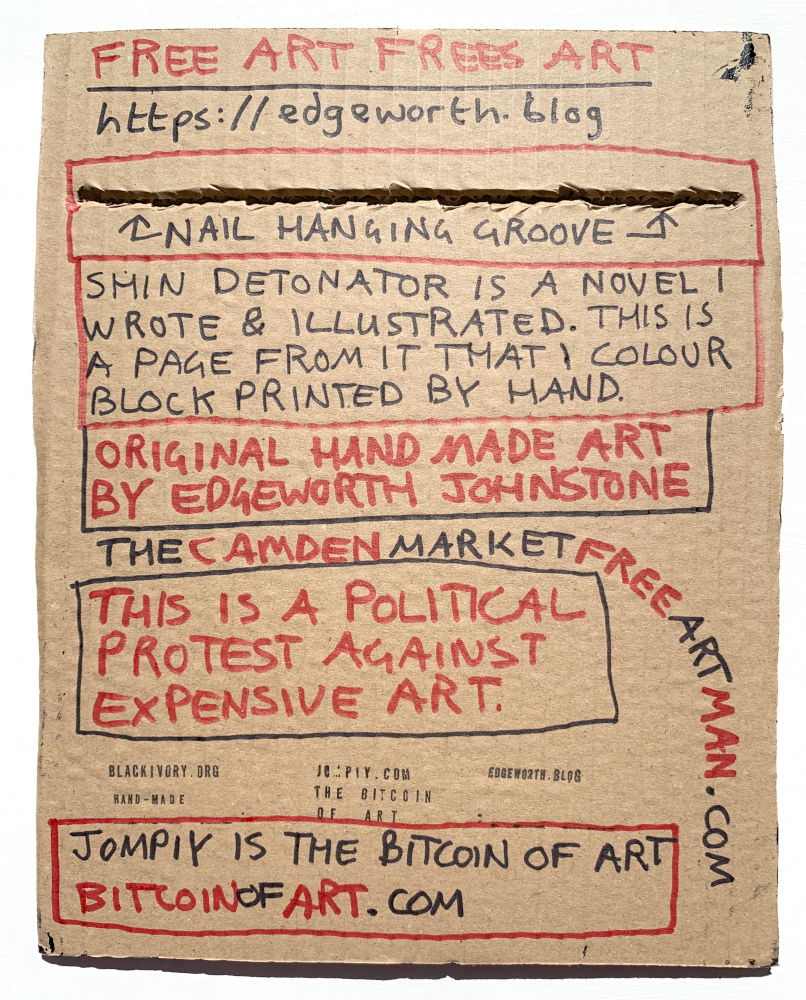 FREE ART FREES ART
https://edgeworth.blog
NAIL HANGING GROOVE
SHIN DETONATOR IS A NOVEL I
WROTE & ILLUSTRATED. THIS IS
A PAGE FROM IT THAT I COLOUR
BLOCK PRINTED BY HAND.
ORIGINAL HAND MADE ART
BY EDGEWORTH JOHNSTONE
THECAMDENMARKETFREEARTMAN.COM
THIS IS A POLITICAL
PROTEST AGAINST
EXPENSIVE ART.
BLACKIVORY.ORG
HAND-MADE
THE BITCOIN
OF ART
EDGEWORTH.BLOG
JOMPIY IS THE BITCOIN OF ART
BITCOINOFART.COM